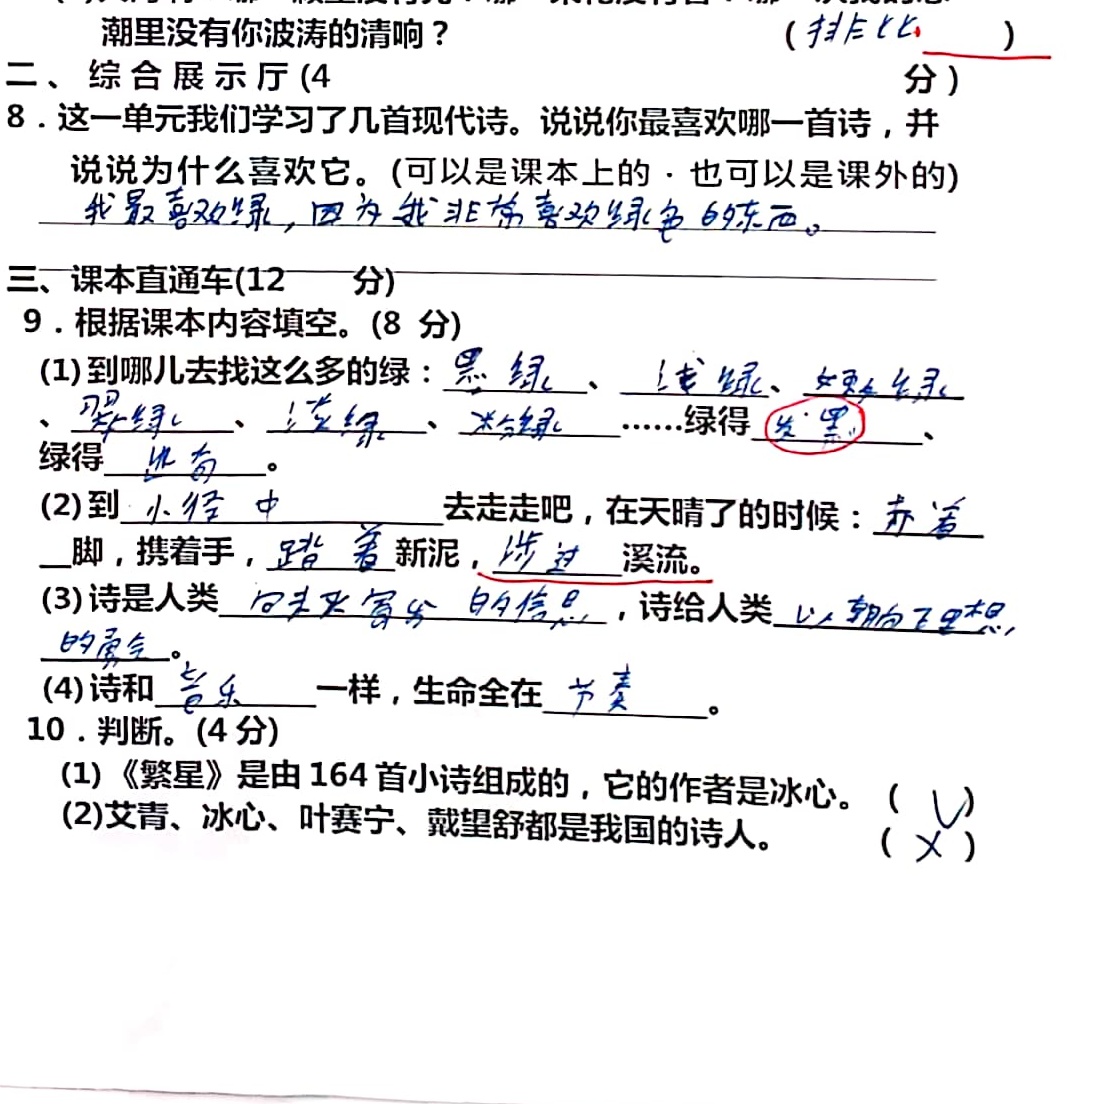 潮里没有你波涛的清响？ (排比 )
二、综合展示厅(4 分)
8．这一单元我们学习了几首现代诗。说说你最喜欢哪一首诗，并
说说为什么喜欢它。(可以是课本上的·也可以是课外的)
我最喜欢绿，因为我非常喜欢绿色的东西。
三、课本直通车(12 分)
9．根据课本内容填空。(8 分)
(1)到哪儿去找这么多的绿：墨绿、浅绿、嫩绿
、翠绿、淡绿、粉绿……绿得发黑、
绿得出奇。
(2)到小径中去走走吧，在天晴了的时候：赤着
脚，携着手，踏着新泥，涉过溪流。
(3)诗是人类向未来寄出的信息，诗给人类以朝向理想
的勇气。
(4)诗和音乐一样，生命全在节奏。
10．判断。(4分)
(1)《繁星》是由164首小诗组成的，它的作者是冰心。(√)
(2)艾青、冰心、叶赛宁、戴望舒都是我国的诗人。(×)